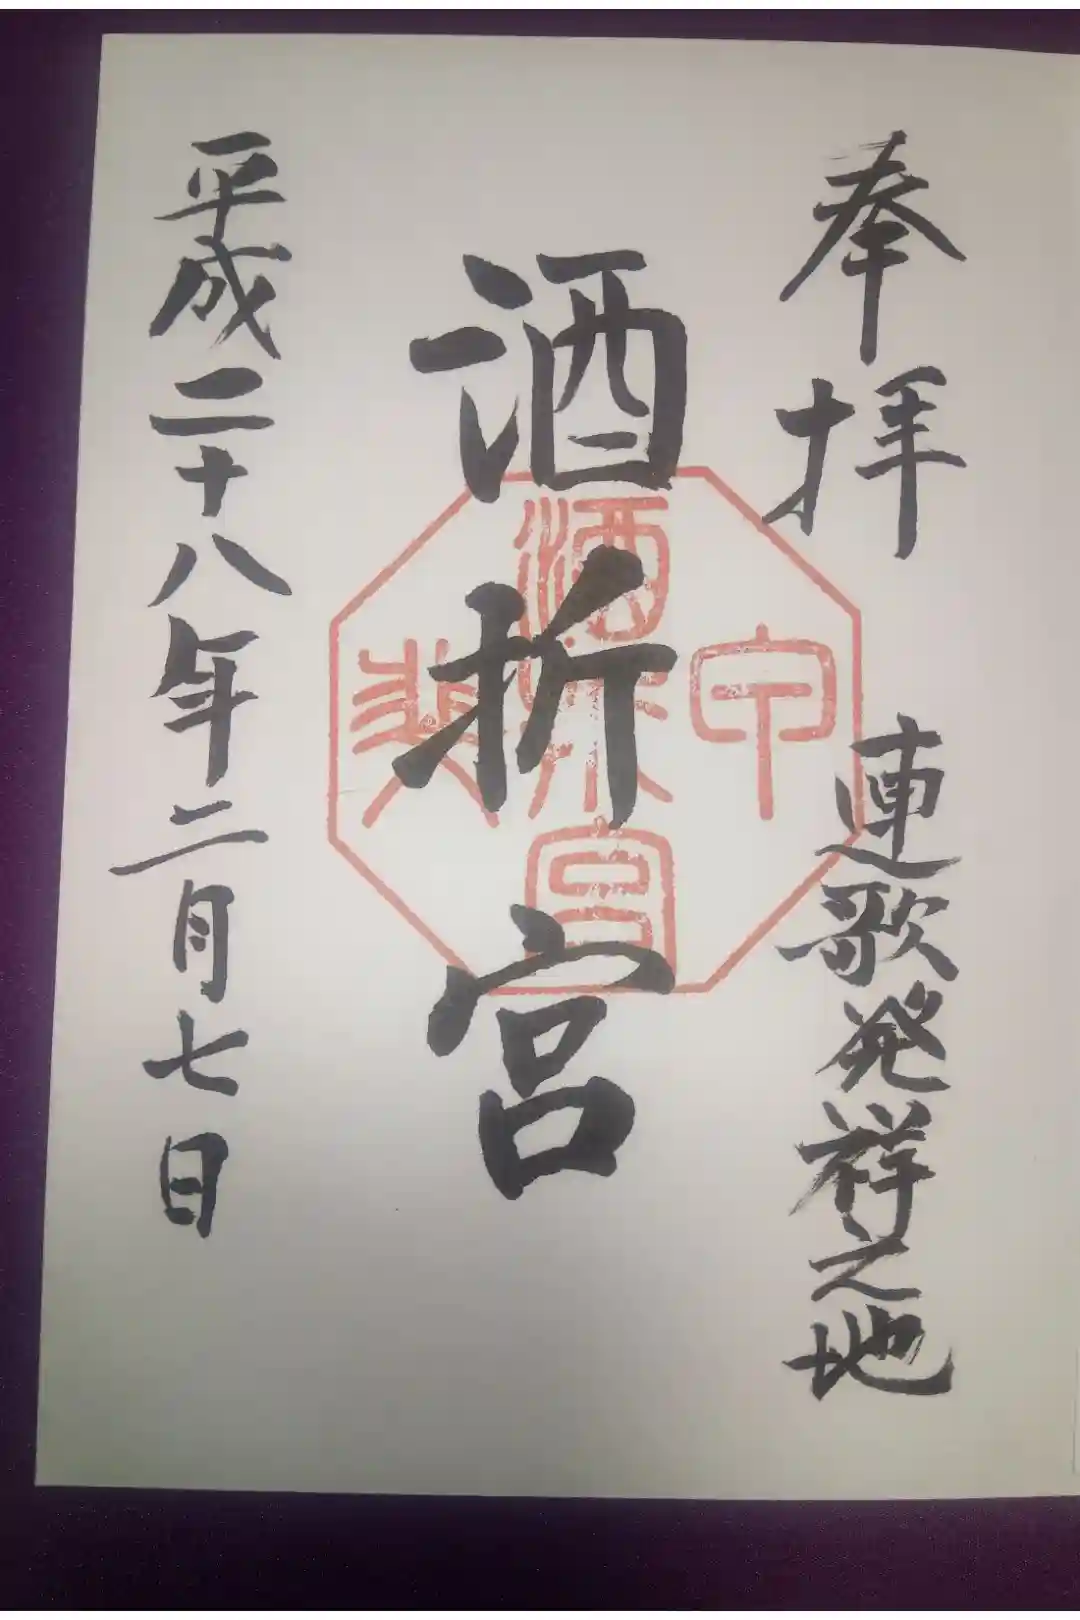 奉拝
連歌発祥之地
酒折宮
甲斐
酒折宮
平成二十八年二月七日